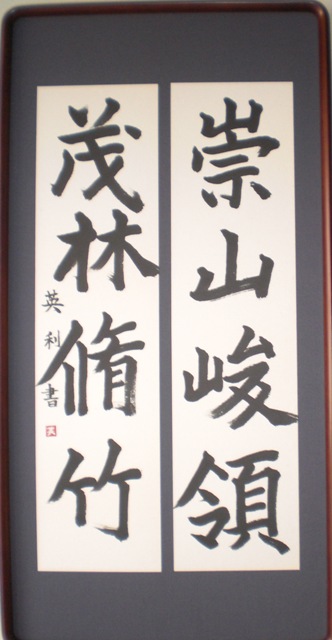 崇山峻領
茂林脩竹
英利書